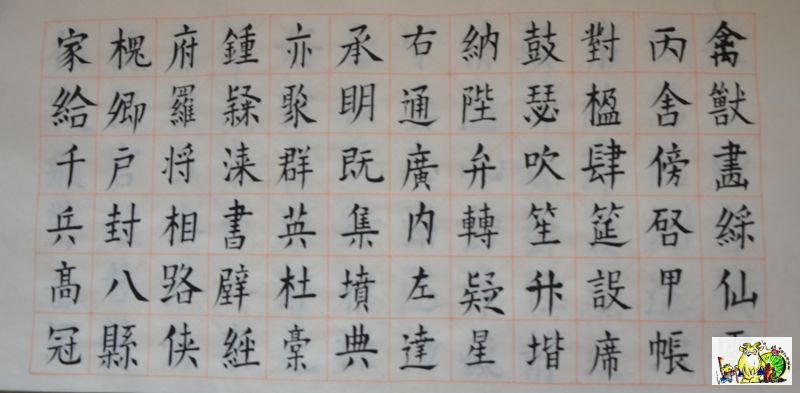 禽獸畫綵仙
丙舍傍啓甲帳
對楹肆筵設席
鼓瑟吹笙升堦
納陛弁轉疑星
右通廣内左達
承明既集墳典
亦聚群英杜稾
鍾隸漆書壁經
府羅将相路俠
槐卿户封八縣
家給千兵髙冠